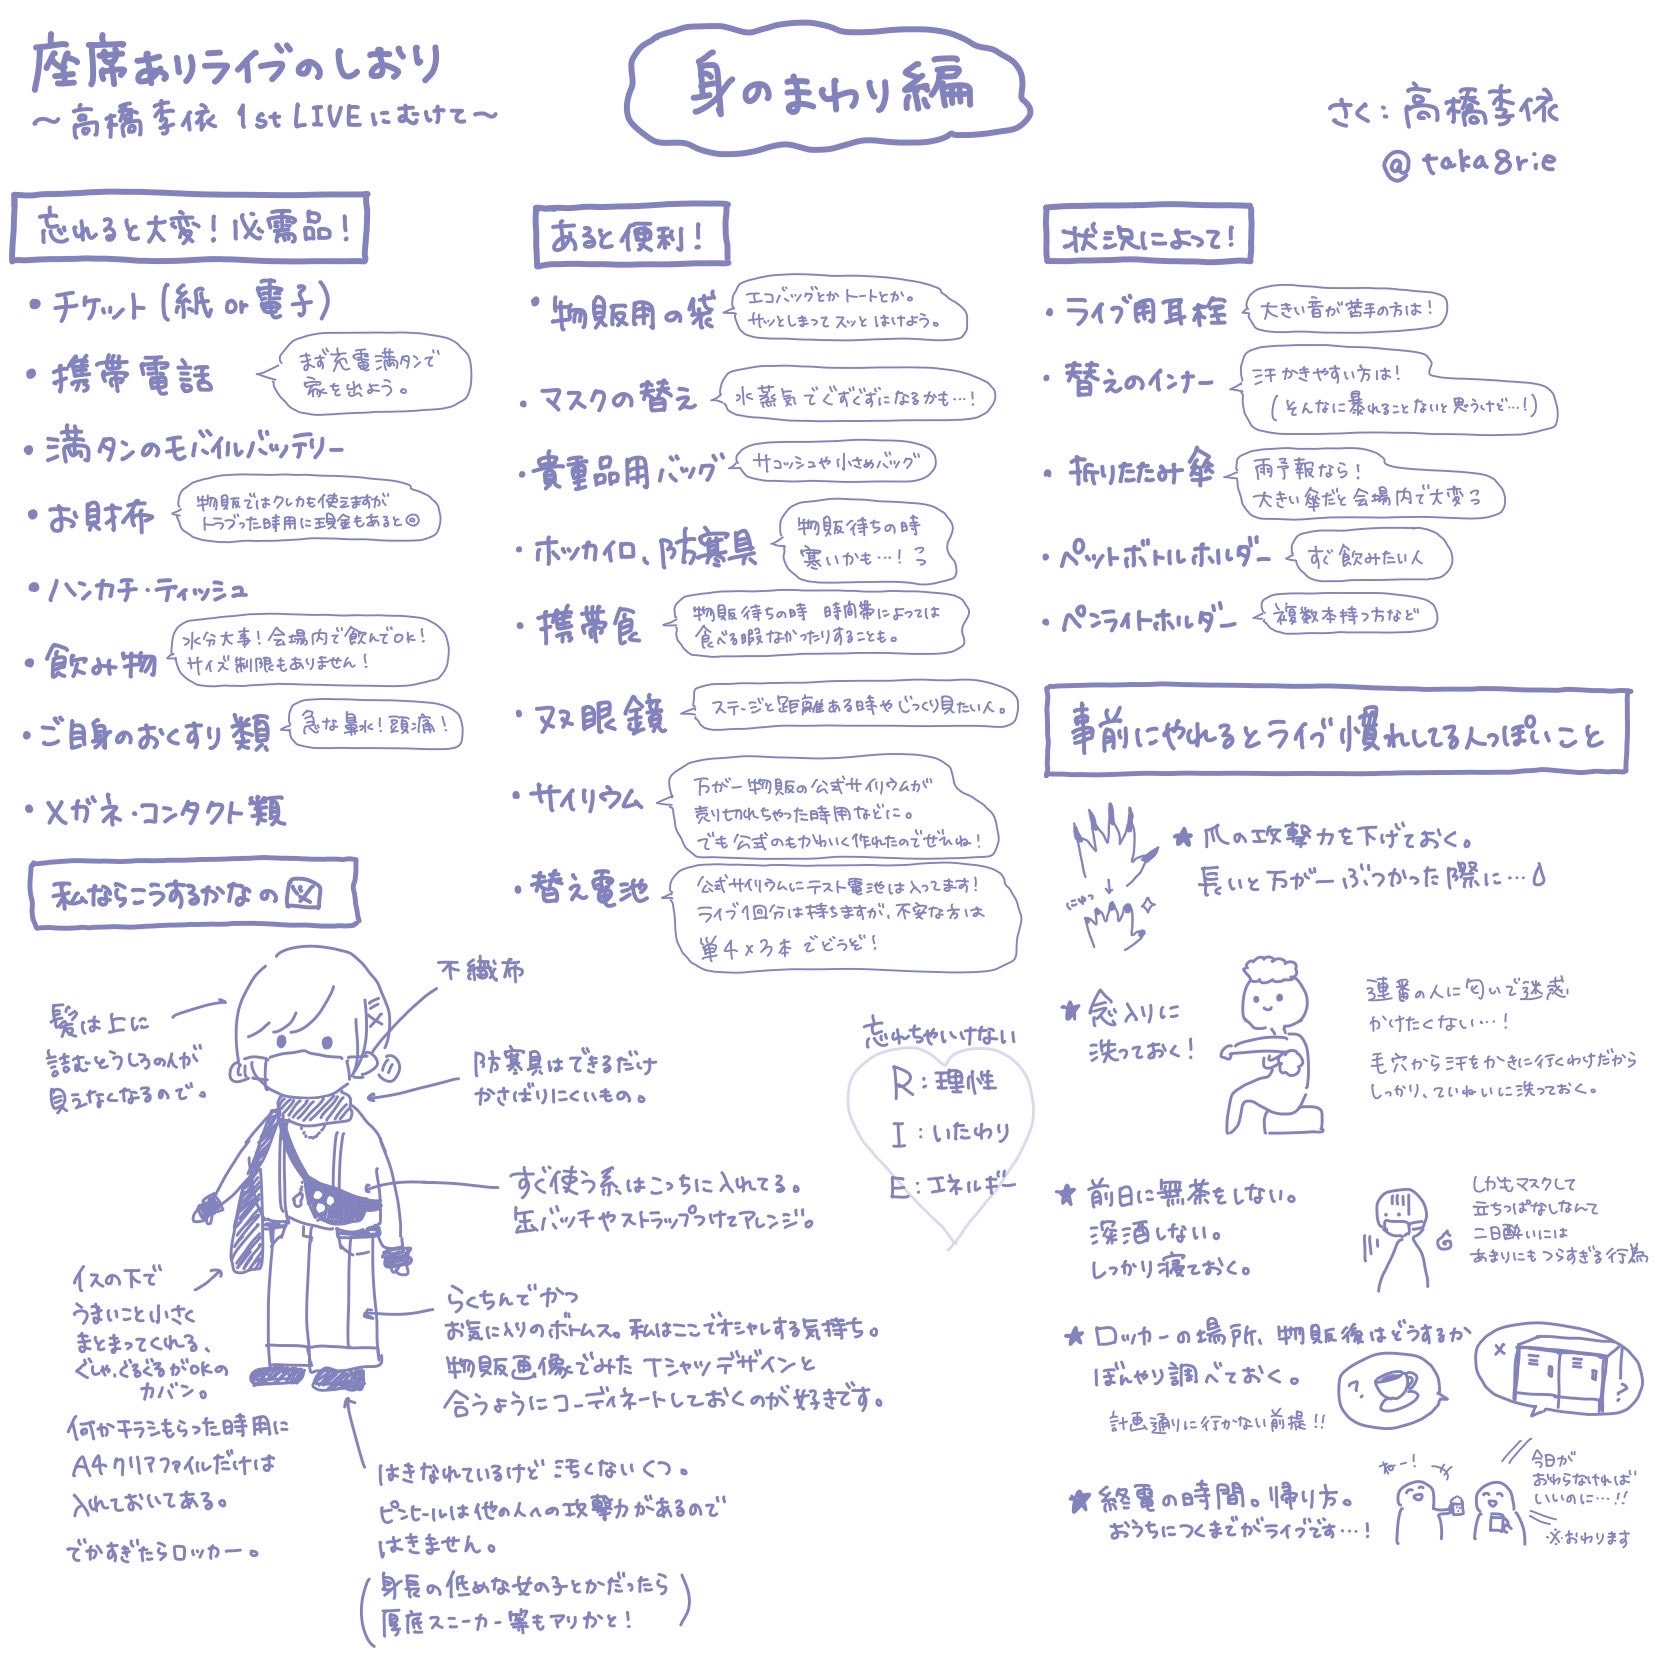 座席ありライブのしおり
～高橋李依 1st LIVEにむけて～
身のまわり編
さく:高橋李依
@taka8rie
忘れると大変！必需品！
・チケット(紙or電子)
・携帯電話
まず充電満タンで
家を出よう。
・満タンのモバイルバッテリー
・お財布
物販ではクレカも使えますが
トラブった時用に現金もあると◎
・ハンカチ・ティッシュ
・飲み物
水分大事！会場内で飲んでOK！
サイズ制限もありません！
・ご自身のおくすり類
急な鼻水！頭痛！
・メガネ・コンタクト類
あると便利！
・物販用の袋
エコバッグとかトートとか。
サッとしまってスッとはけよう。
・マスクの替え
水蒸気でぐずぐずになるかも…！
・貴重品用バッグ
サコッシュや小さめバッグ
・ホッカイロ、防寒具
物販待ちの時
寒いかも…！っ
・携帯食
物販待ちの時 時間帯によっては
食べる暇なかったりすることも。
・双眼鏡
ステージと距離ある時やじっくり見たい人。
・サイリウム
万が一物販の公式サイリウムが
売り切れちゃった時用などに。
でも公式のもかわいく作れたのでぜひね！
・替え電池
公式サイリウムにテスト電池は入ってます！
ライブ1回分は持ちますが、不安な方は
単4×3本でどうぞ！
状況によって！
・ライブ用耳栓
大きい音が苦手の方は！
・替えのインナー
汗かきやすい方は！
(そんなに暴れることないと思うけど…！)
・折りたたみ傘
雨予報なら！
大きい傘だと会場内で大変っ
・ペットボトルホルダー
すぐ飲みたい人
・ペンライトホルダー
複数本持つ方など
私ならこうするかなの図
髪は上に
詰むとうしろの人が
見えなくなるので。
不織布
防寒具はできるだけ
かさばりにくいもの。
すぐ使う系はこっちに入れてる。
缶バッチやストラップつけてアレンジ。
イスの下で
うまいこと小さく
まとまってくれる、
ぐしゃぐるぐるがOKの
カバン。
何かチラシもらった時用に
A4クリアファイルだけは
入れておいてある。
でかすぎたらロッカー。
らくちんでかつ
お気に入りのボトムス。私はここでオシャレする気持ち。
物販画像でみたTシャツデザインと
合うようにコーディネートしておくのが好きです。
はきなれているけど汚くないくつ。
ピンヒールは他の人への攻撃力があるので
はきません。
(身長の低めな女の子とかだったら
厚底スニーカー等もアリかと！)
忘れちゃいけない
R:理性
I:いたわり
E:エネルギー
事前にやれるとライブ慣れしてる人っぽいこと
にゃっ
★爪の攻撃力を下げておく。
長いと万が一ぶつかった際に…
★念入りに
洗っておく！
連番の人に匂いで迷惑
かけたくない…！
毛穴から汗をかきに行くわけだから
しっかり、ていねいに洗っておく。
★前日に無茶をしない。
深酒しない。
しっかり寝ておく。
しかもマスクして
立ちっぱなしなんて
二日酔いには
あまりにもつらすぎる行為
★ロッカーの場所、物販後はどうするか
ぼんやり調べておく。
計画通りに行かない前提!!
★終電の時間。帰り方。
おうちにつくまでがライブです…！
ねー！
今日が
おわらなければ
いいのに…!!
※おわります